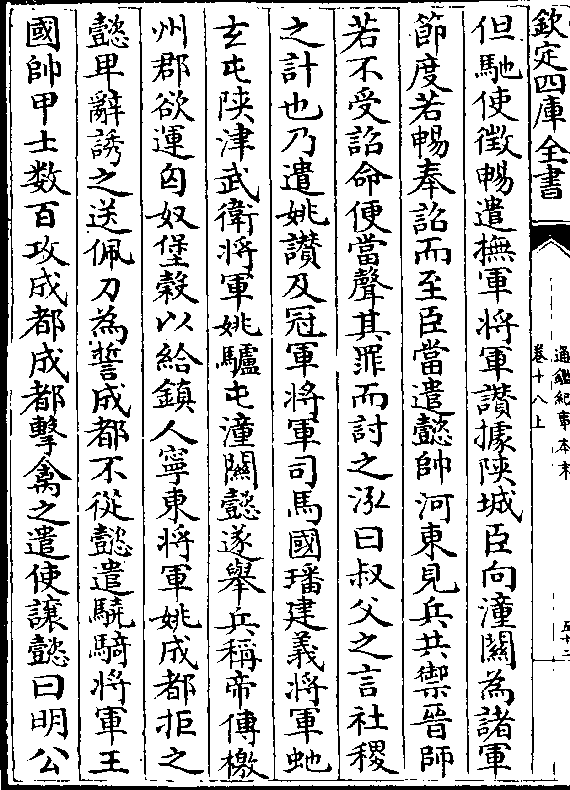 欽定四庫全書
通鑑紀事本末
卷十八上
五十二
但馳使徵暢遣撫軍將軍讚據陝城臣向潼關為諸軍
節度若暢奉詔而至臣當遣懿帥河東見兵共禦晉師
若不受詔命便當聲其罪而討之泓曰叔父之言社稷
之計也乃遣姚讚及冠軍將軍司馬國璠建義將軍虵
玄屯陝津武衛將軍姚驢屯潼關懿遂舉兵稱帝傳檄
州郡欲運匈奴堡穀以給鎮人寧東將軍姚成都拒之
懿卑辭誘之送佩刀為誓成都不從懿遣驍騎將軍王
國帥甲士数百攻成都成都擊禽之遣使讓懿曰明公